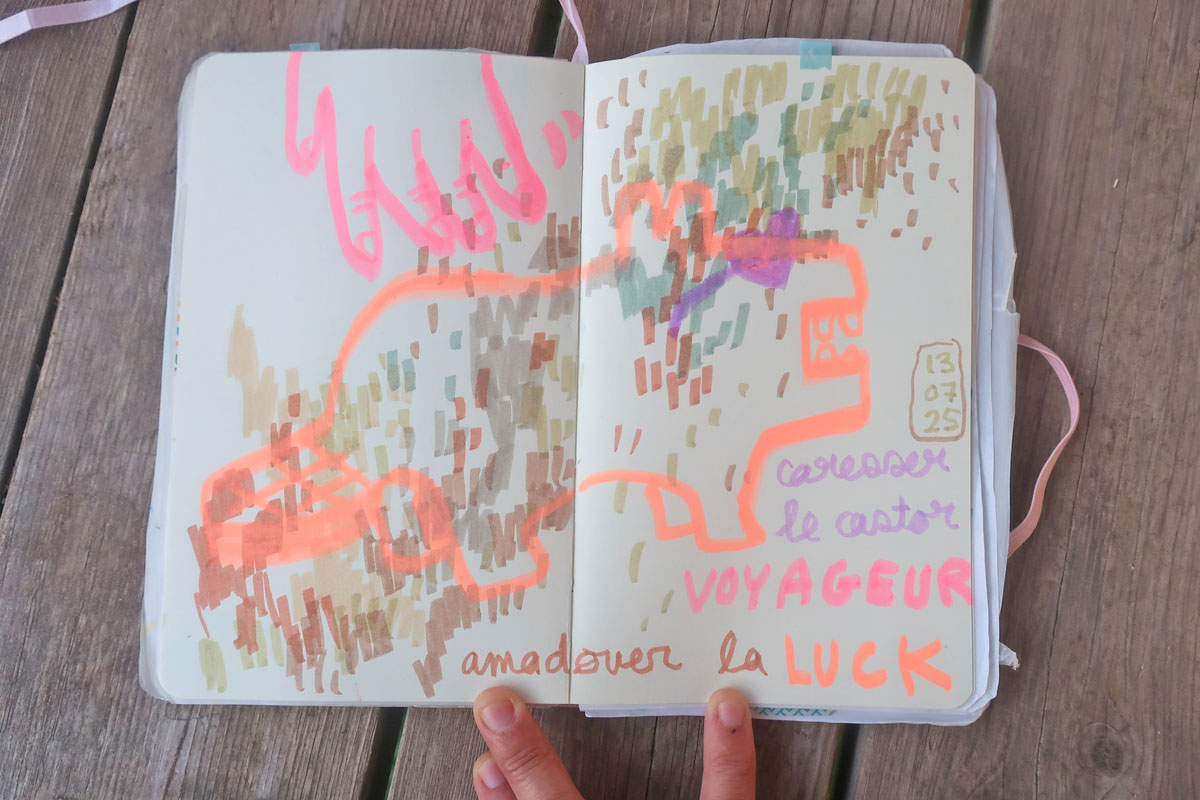 13
07
25
caresser
le castor
VOYAGEUR
amadouer la LUCK